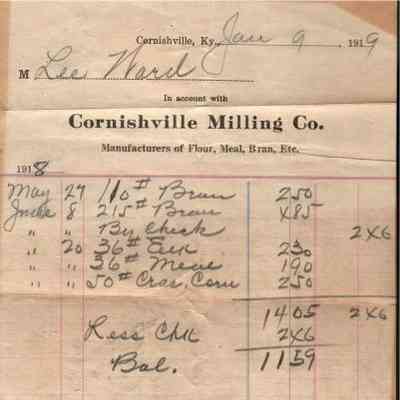 Cornishville, Ky. Jan 9, 1919
M Lee Ward
In account with
Cornishville Milling Co.
Manufacturers of Flour, Meal, Bran, Etc.
1918
May 27 110# Bran 250
June 8 215# Bran 485
" " By Check 246
" 20 36# 230
" " 36# Meal 190
" " 50# Corn 250
1405 246
Less Chk 246
Bal. 1159